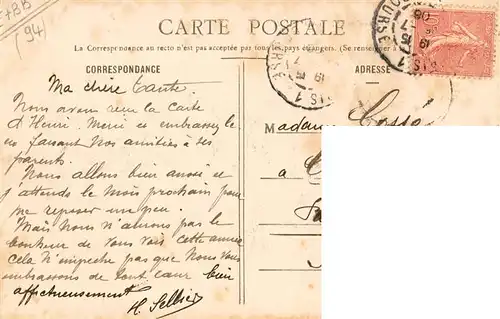 F7BB
(94)
CARTE POSTALE
La Correspondance au recto n'est pas acceptée par tous les pays étrangers. (Se renseigner
CORRESPONDANCE
ADRESSE
Ma chère Tante,
Nous avons reçu la carte
d'Henri. Merci et embrassez le
en faisant nos amitiés à ses
parents.
Nous allons bien aussi et
j'attends le mois prochain pour
me reposer un peu.
Mais nous n'aurons pas le
bonheur de vous voir cette année
cela n'empêche pas que nous vous
embrassons de tout cœur bien
affectueusement
H. Sellier
Madame
à